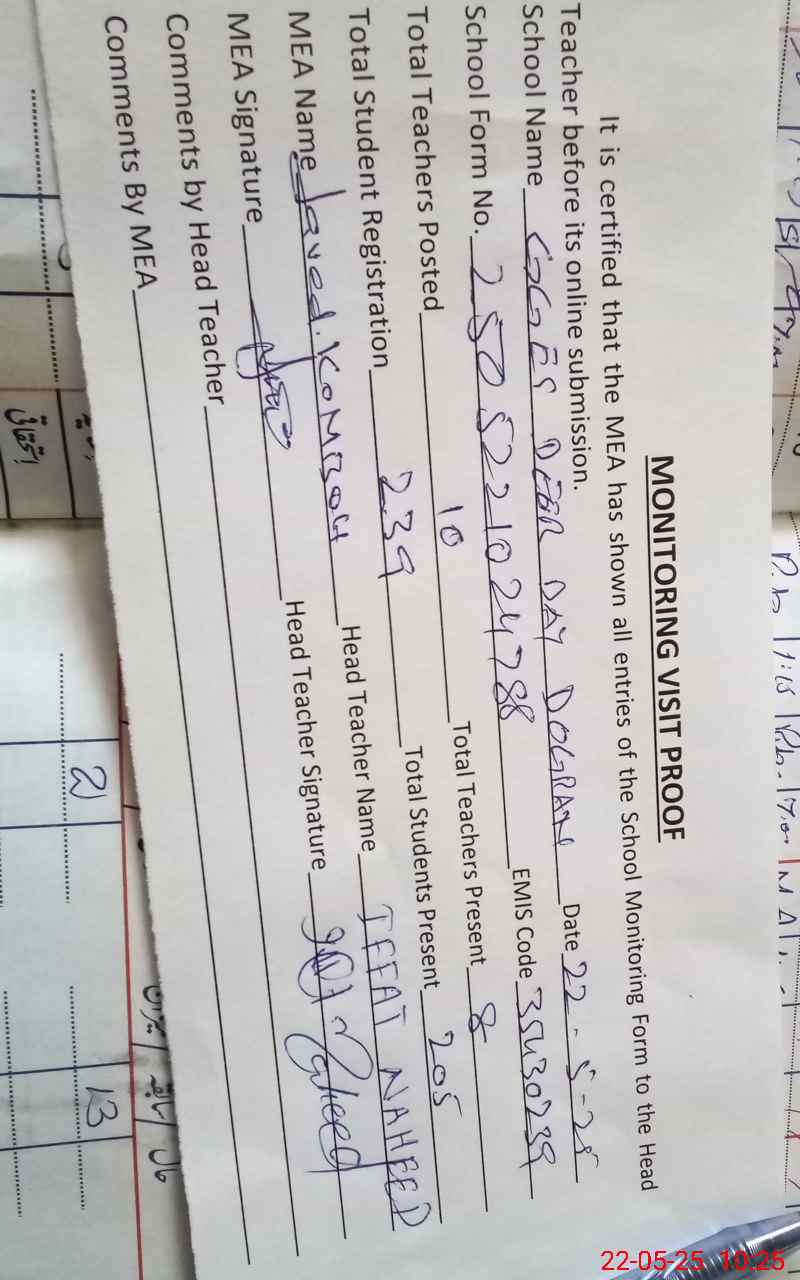 MONITORING VISIT PROOF
It is certified that the MEA has shown all entries of the School Monitoring Form to the Head
Teacher before its online submission.
School Name GGES DERA DAY DOGRAN Date 22-5-25
School Form No. 2505221024788 EMIS Code 35430239
Total Teachers Posted 10 Total Teachers Present 8
Total Student Registration 239 Total Students Present 205
MEA Name Javed Head Teacher Name IFFAT NAHEED
MEA Signature Head Teacher Signature Naheed
Comments by Head Teacher
Comments By MEA
2
13
22-05-25 10:25